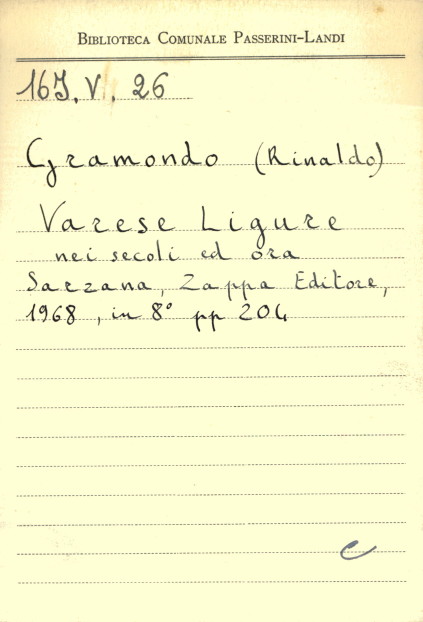 BIBLIOTECA COMUNALE PASSERINI-LANDI
16J. V. 26
Gramondo (Rinaldo)
Varese Ligure
nei secoli ed ora
Sarzana, Zappa Editore,
1968, in 8° pp 204
C